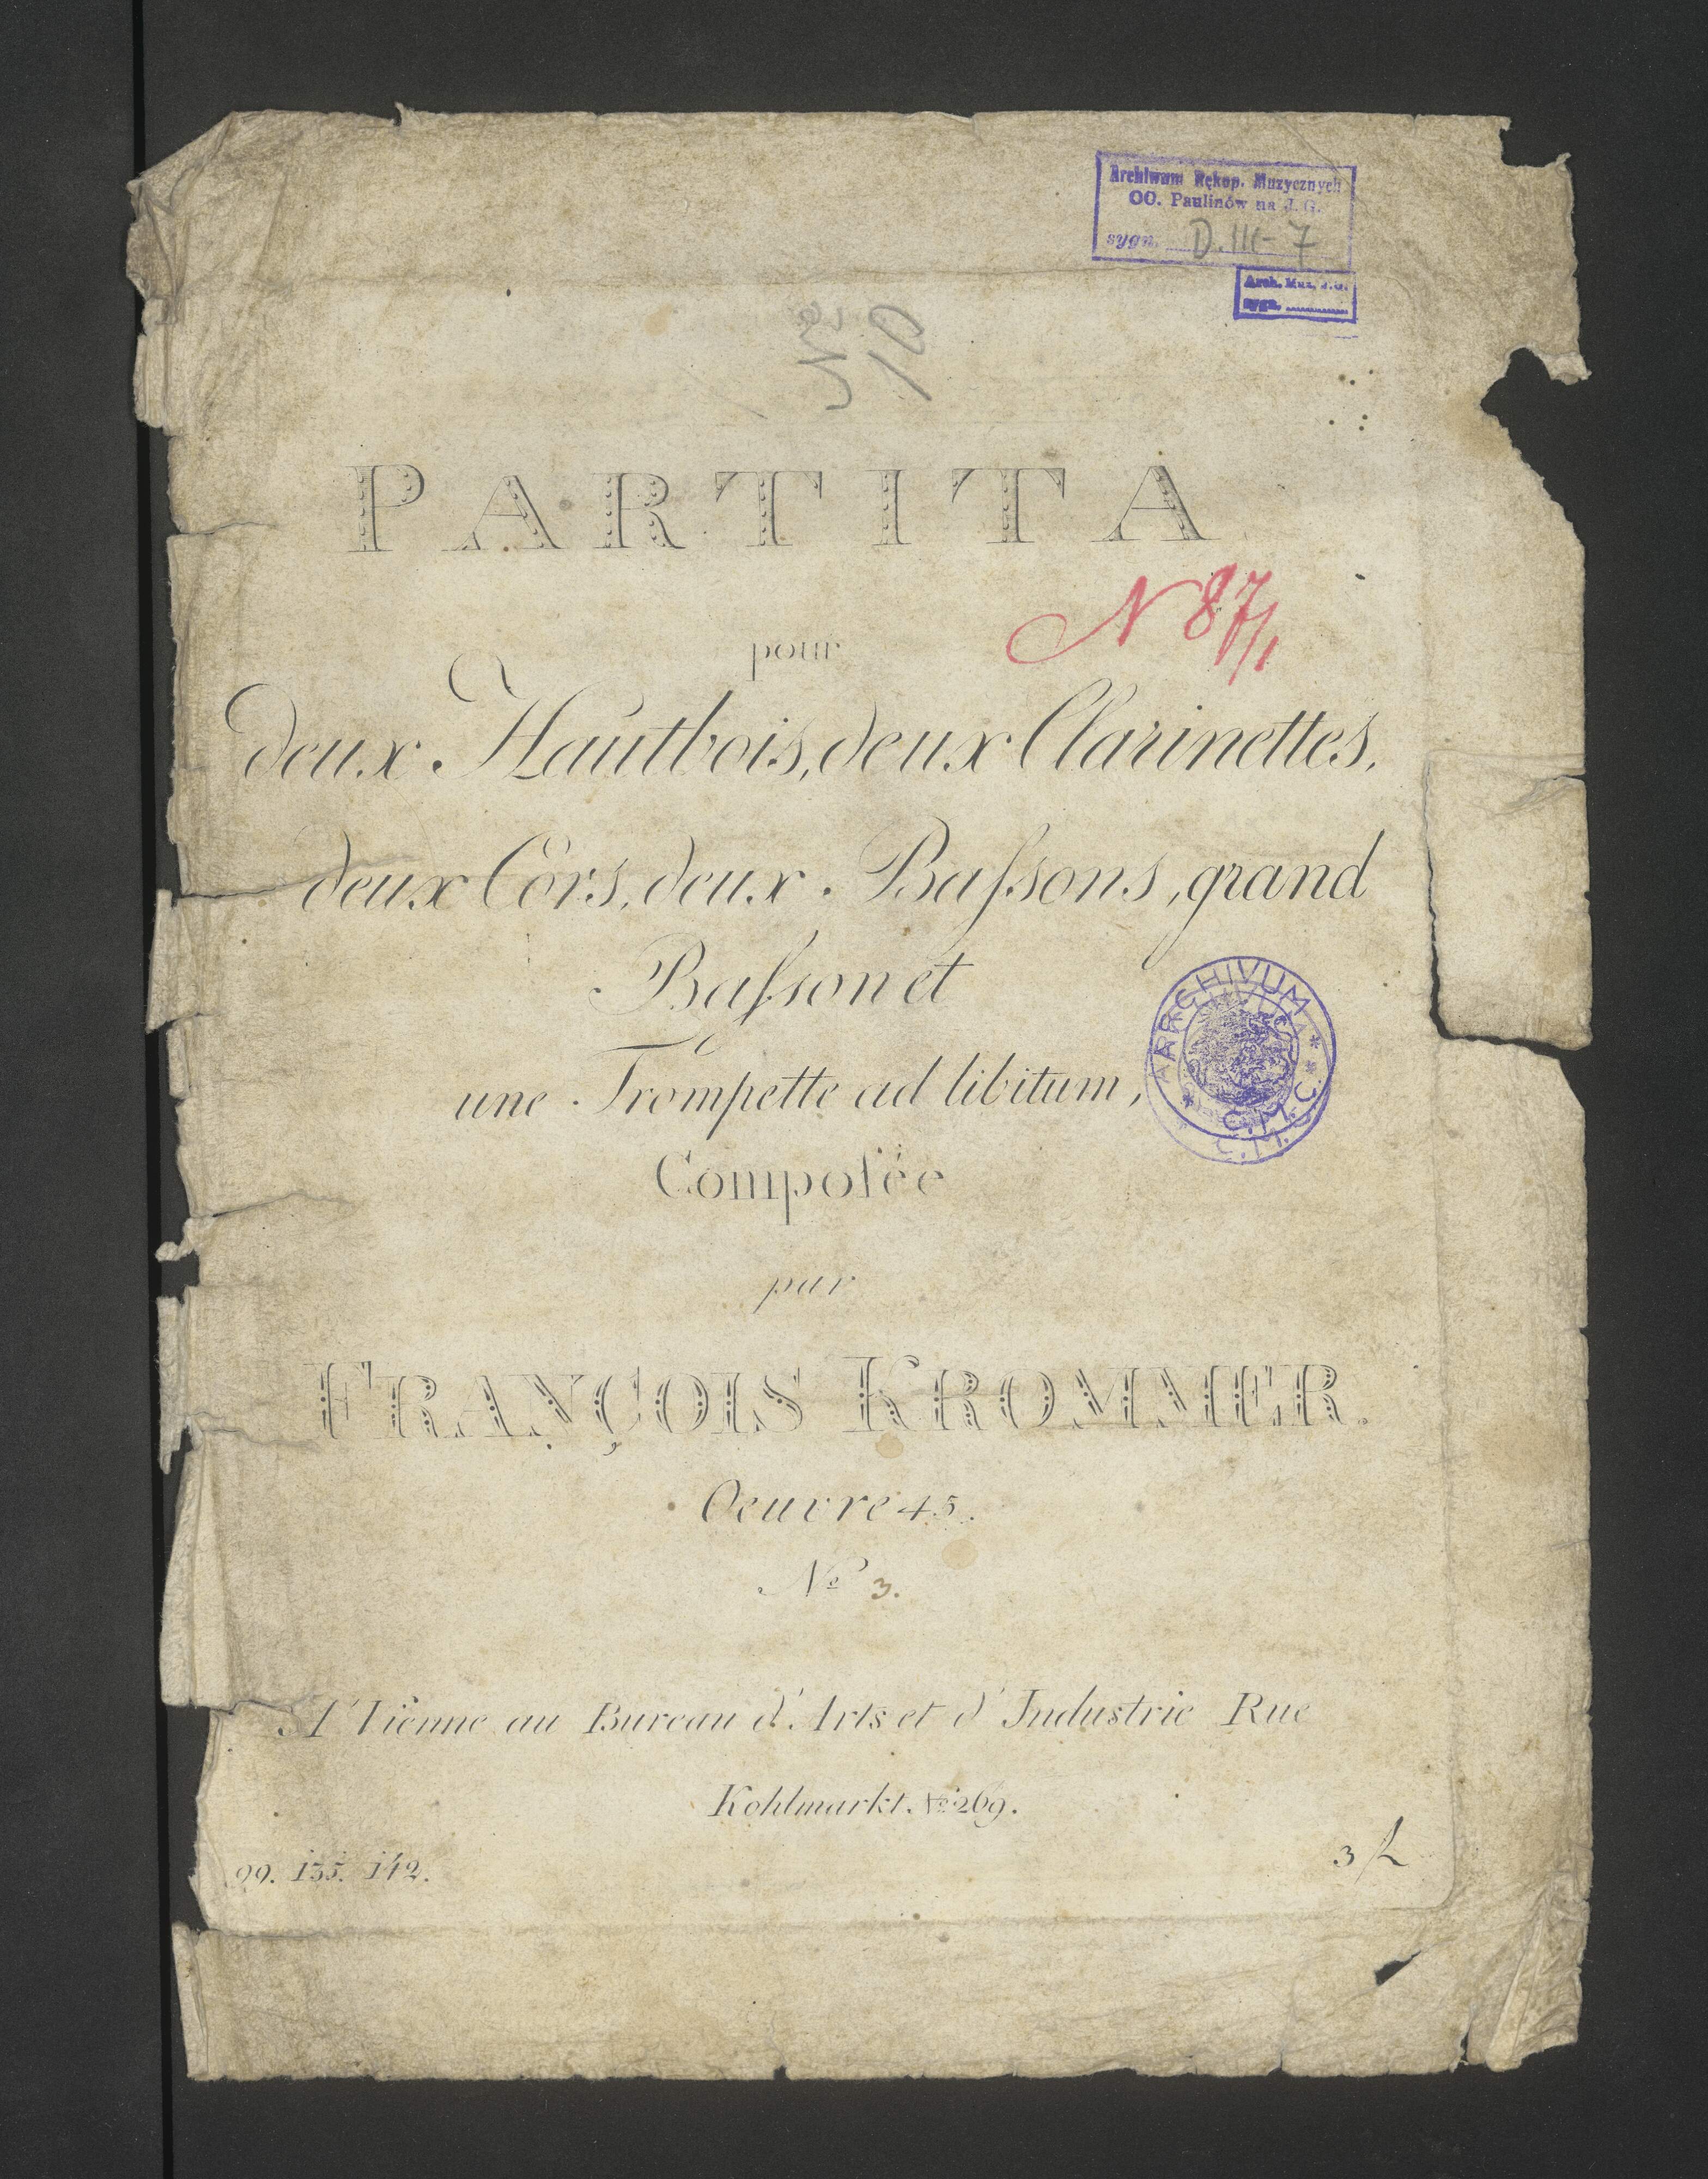 Archiwum Rękop. Muzycznych
OO. Paulinów na J. G.
sygn. D. III-7
Arch. Muz. J.G.
sygn.
PARTITA
N 87/1
pour
deux Hautbois, deux Clarinettes,
deux Côrs, deux Baſsons, grand
Baſson et
une Trompette ad libitum,
Compoſée
par
FRANÇOIS KROMMER.
Oeuvre 45.
Nº 3.
A Vienne au Bureau d'Arts et d'Industrie Rue
Kohlmarkt Nº 269.
99. 135. 142.
ARCHIVUM
C.M.C.